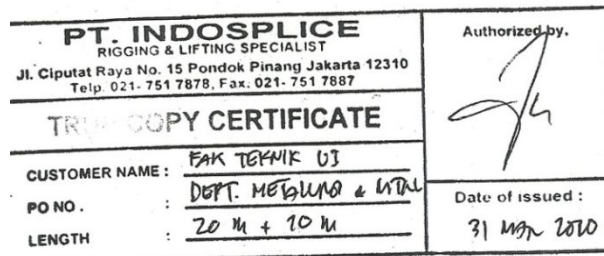 PT. INDOSPLICE
RIGGING & LIFTING SPECIALIST
Jl. Ciputat Raya No. 15 Pondok Pinang Jakarta 12310
Telp. 021- 751 7878, Fax. 021- 751 7887
COPY CERTIFICATE
CUSTOMER NAME : FAK TEKNIK UI
PO NO. : DEPT. METALURGI &
LENGTH : 20 M + 20 M
Authorized by,
Date of issued :
31 2020